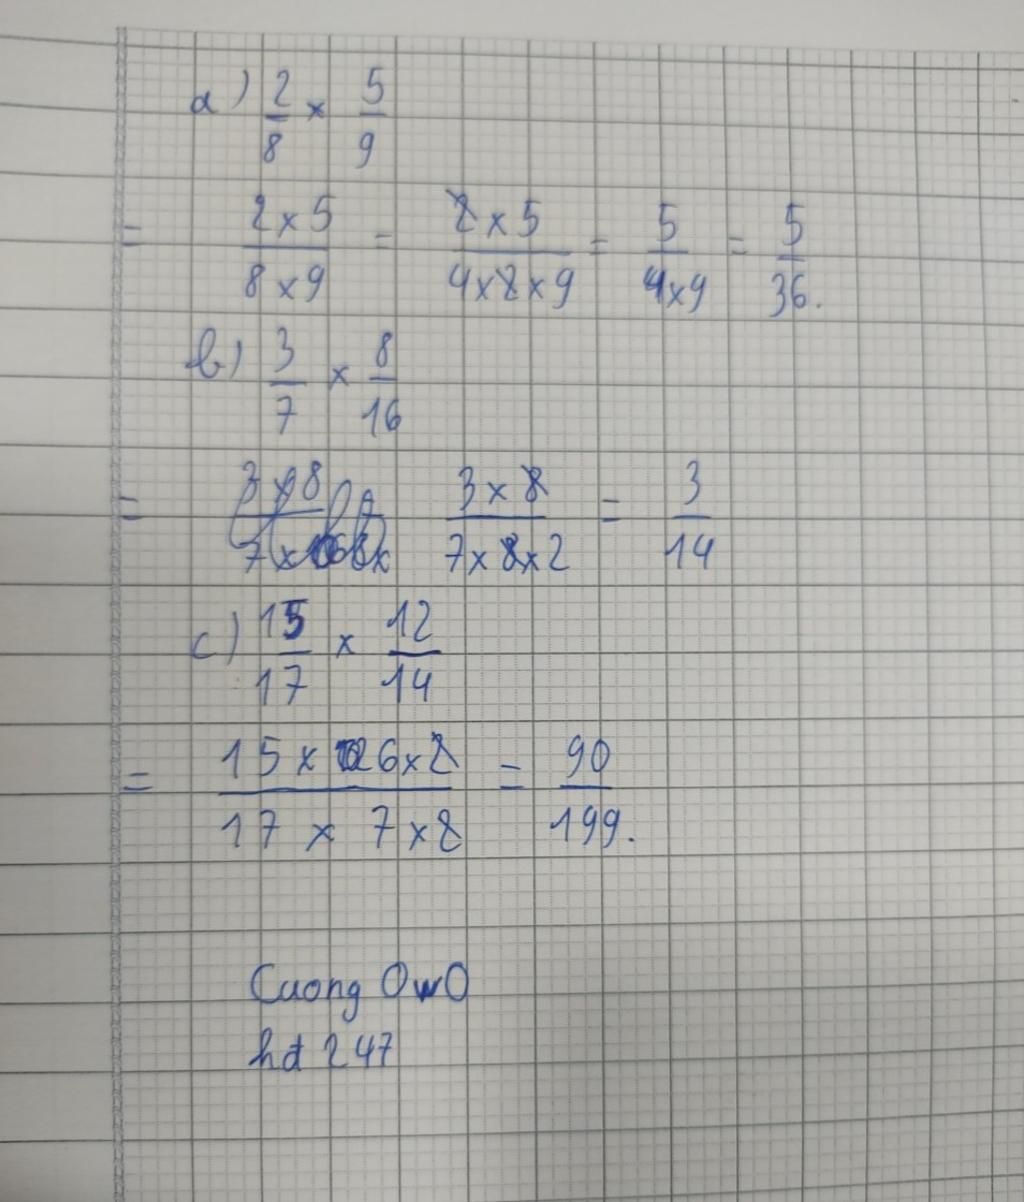 a) 2/8 × 5/9
= 2 × 5 / 8 × 9 = 2 × 5 / 4 × 2 × 9 = 5 / 4 × 9 = 5/36.
b) 3/7 × 8/16
= 3 × 8 / 7 × 8 × 2 = 3/14
c) 15/17 × 12/14
= 15 × 6 × 2 / 17 × 7 × 2 = 90/199.
Cuong OwO
hd 247